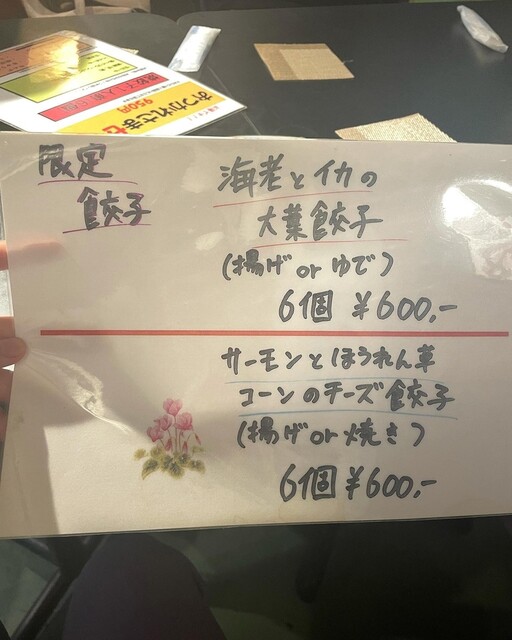 おつかれさませ
950円
限定
餃子
海老とイカの
大葉餃子
(揚げ or ゆで)
6個 ¥600.-
サーモンとほうれん草
コーンのチーズ餃子
(揚げ or 焼き)
6個 ¥600.-